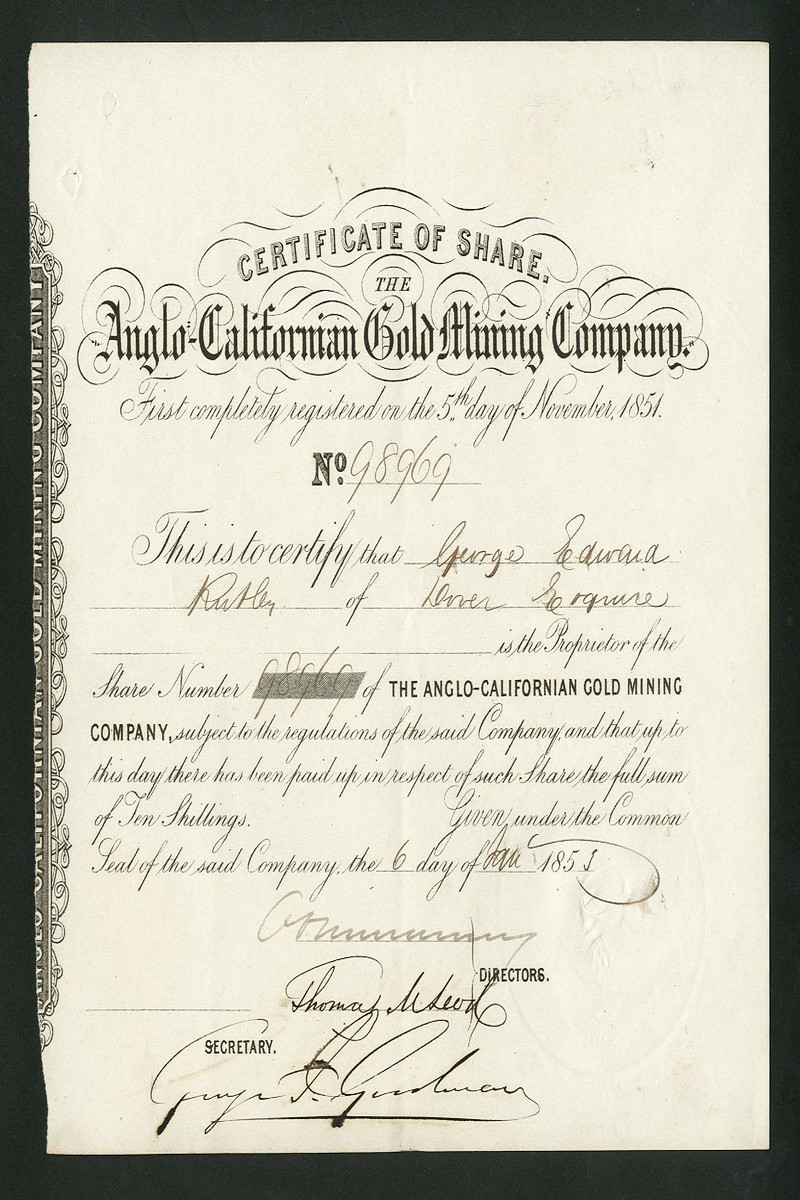 CERTIFICATE OF SHARE.
THE
"Anglo-Californian Gold Mining Company."
First completely registered on the 5th day of November, 1851.
No 98969
This is to certify that George Edward
of Dover Esquire
is the Proprietor of the
Share Number 98969 of THE ANGLO-CALIFORNIAN GOLD MINING
COMPANY, subject to the regulations of the said Company, and that up to
this day there has been paid up in respect of such Share the full sum
of Ten Shillings. Given under the Common
Seal of the said Company, the 6 day of Jan 1853
DIRECTORS.
Thomas McLeod
SECRETARY.
George F. Goodman
ANGLO-CALIFORNIAN GOLD MINING COMPANY